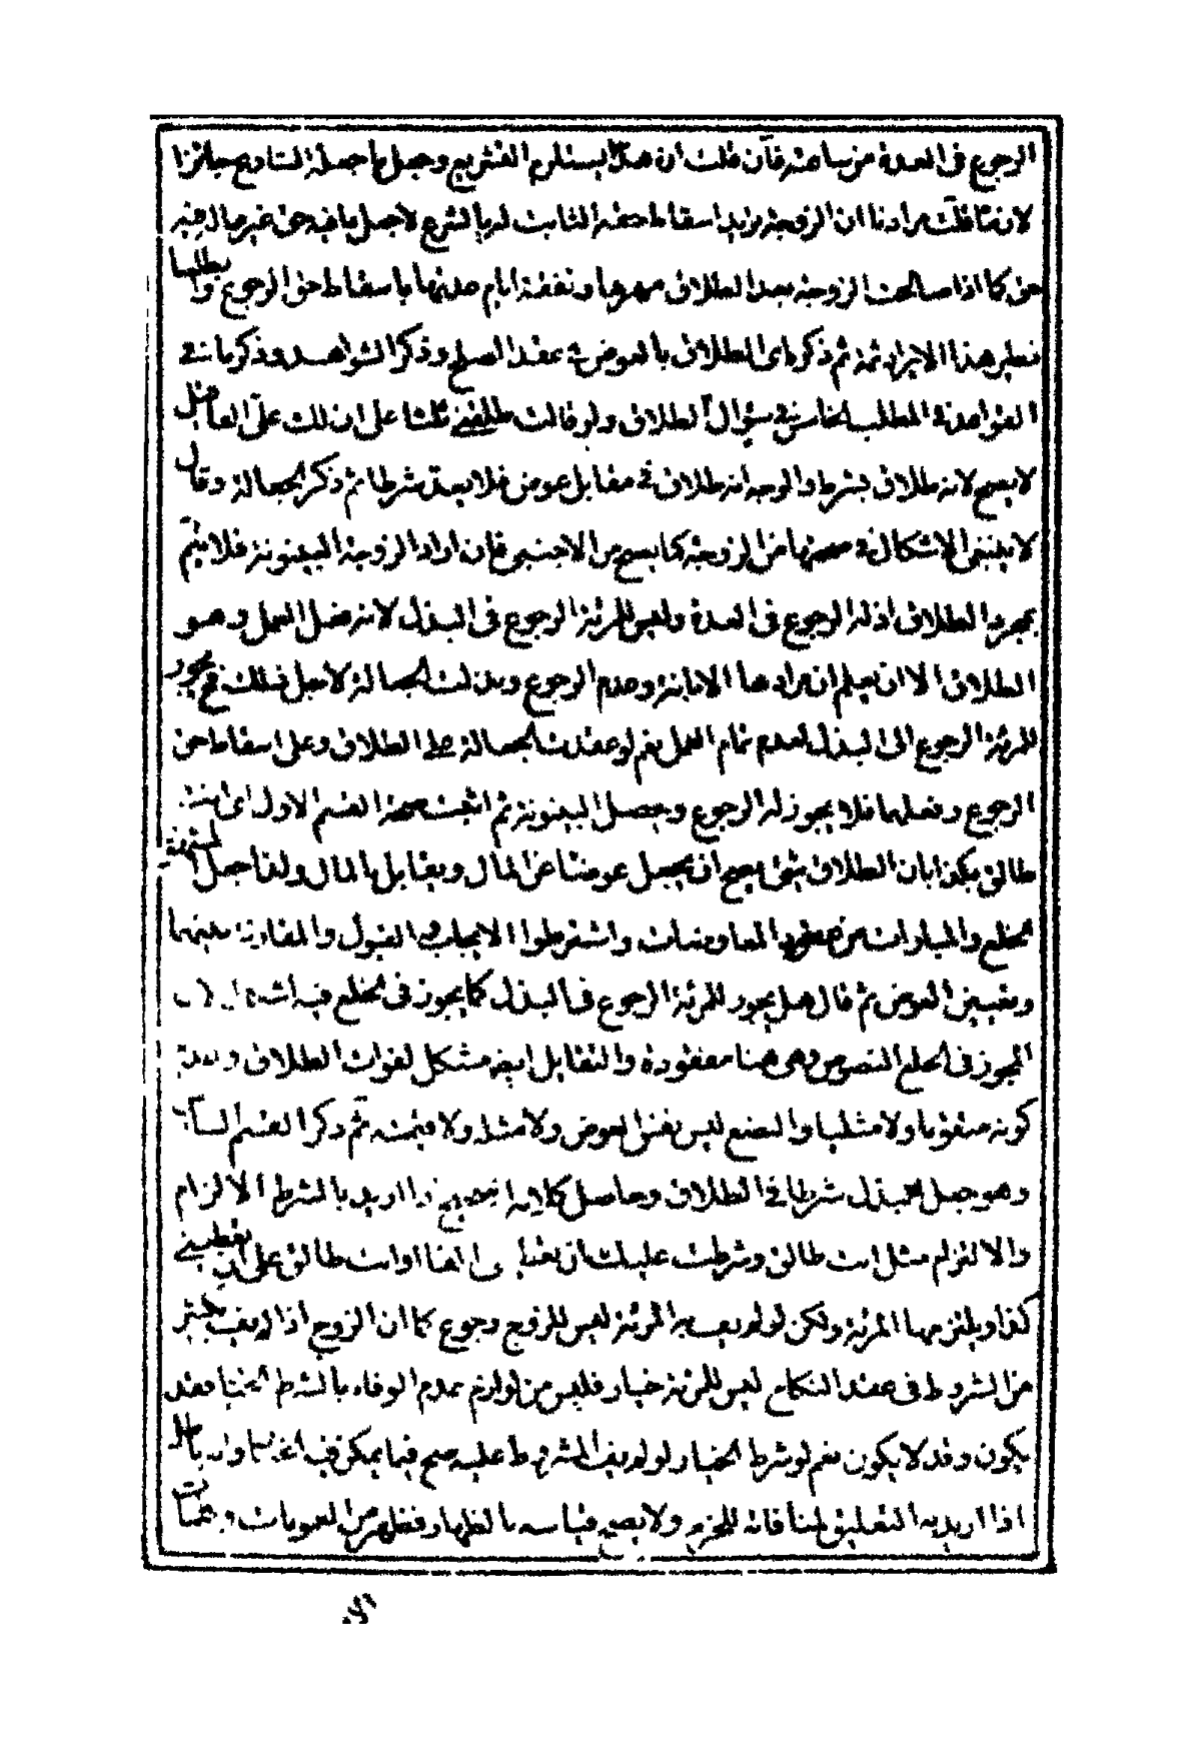 الرجوع فى العدة من سا عته فآن قلت ان هذا يستلزم التشريع وجعل ما جعله الشارع جائزا
لازما قلت مرادنا ان الزوجة يريد اسقاط حقه الثابت له بالشرع لاجل ما فيه حق غير مالى فيه
حق كما اذا صالحت الزوجة بعد الطلاق مهرها ونفقة ايام عدتها باسقاط حق الرجوع
نظير هذا الايراد ثمة ثم ذكر ما فى الطلاق بالعوض فى عقد الصلح وذكر الشواهد وذكر ما فى
القواعد فى المطلب الخامس فى سؤال الطلاق ولو قالت طلقنى ثلثا على ان لك علىّ الفا قيل
لا يصح لانه طلاق بشرط والوجه انه طلاق فى مقابل عوض فلا يعد شرطا ثم ذكر الجعالة وقال
لا ينبغى الاشكال فى صحتها من الزوجة كما يصح من الاجنبى فإن اراد الزوجة البينونة فلا يتم
بمجرد الطلاق اذ له الرجوع فى العدة وليس للمرئة الرجوع فى البذل لانه فعل العمل وهو
الطلاق الا ان يعلم ان مرادها الابانة وعدم الرجوع وبذلت الجعالة لاجل ذلك فح يجوز
للمرئة الرجوع الى البذل لعدم تمام العمل نعم لو عقدت الجعالة على الطلاق وعلى اسقاط حق
الرجوع وفعلهما فلا يجوز له الرجوع وحصل البينونة ثم اثبت صحة القسم الاول اى انت
طالق بكذا بان الطلاق شئ يصح ان يجعل عوضا عن المال ويقابل بالمال ولذا جعل
الخلع والمبارات من عقود المعاوضات واشترطوا الايجاب فيه القبول والمقارنة بينهما
وتعيين العوض ثم قال هل يجوز للمرئة الرجوع فى البذل كما يجوز فى الخلع فيه اشكال لان
المجوز فى الخلع النصوص وهى هنا مفقودة والتقابل ايضا مشكل لفوات الطلاق وعدم
كونه متقوما ولا مثليا والبضع ليس نفس العوض ولا مثله ولا قيمته ثم ذكر القسم
وهو جعل البذل شرطا فى الطلاق وحاصل كلامه انه يصح اذا اريد بالشرط الالزام
والالتزام مثل انت طالق وشرطت عليك ان تعطينى الفا او انت طالق على ان تعطينى
كذا ويلتزم بها المرئة ولكن لو لم يف به المرئة ليس للزوج رجوع كما ان الزوج اذا لم يف
من الشروط فى عقد النكاح ليس للمرئة خيار فليس من لوازم عدم الوفاء بالشرط الخيار فقد
يكون وقد لا يكون نعم لو شرط الخيار لو لم يف المشروط عليه صح فيما يمكن فيه الخيار
اذا اريد به التعليق لمنافاته للجزم ولا يصح قياسه بالظهار فظهر من العمومات